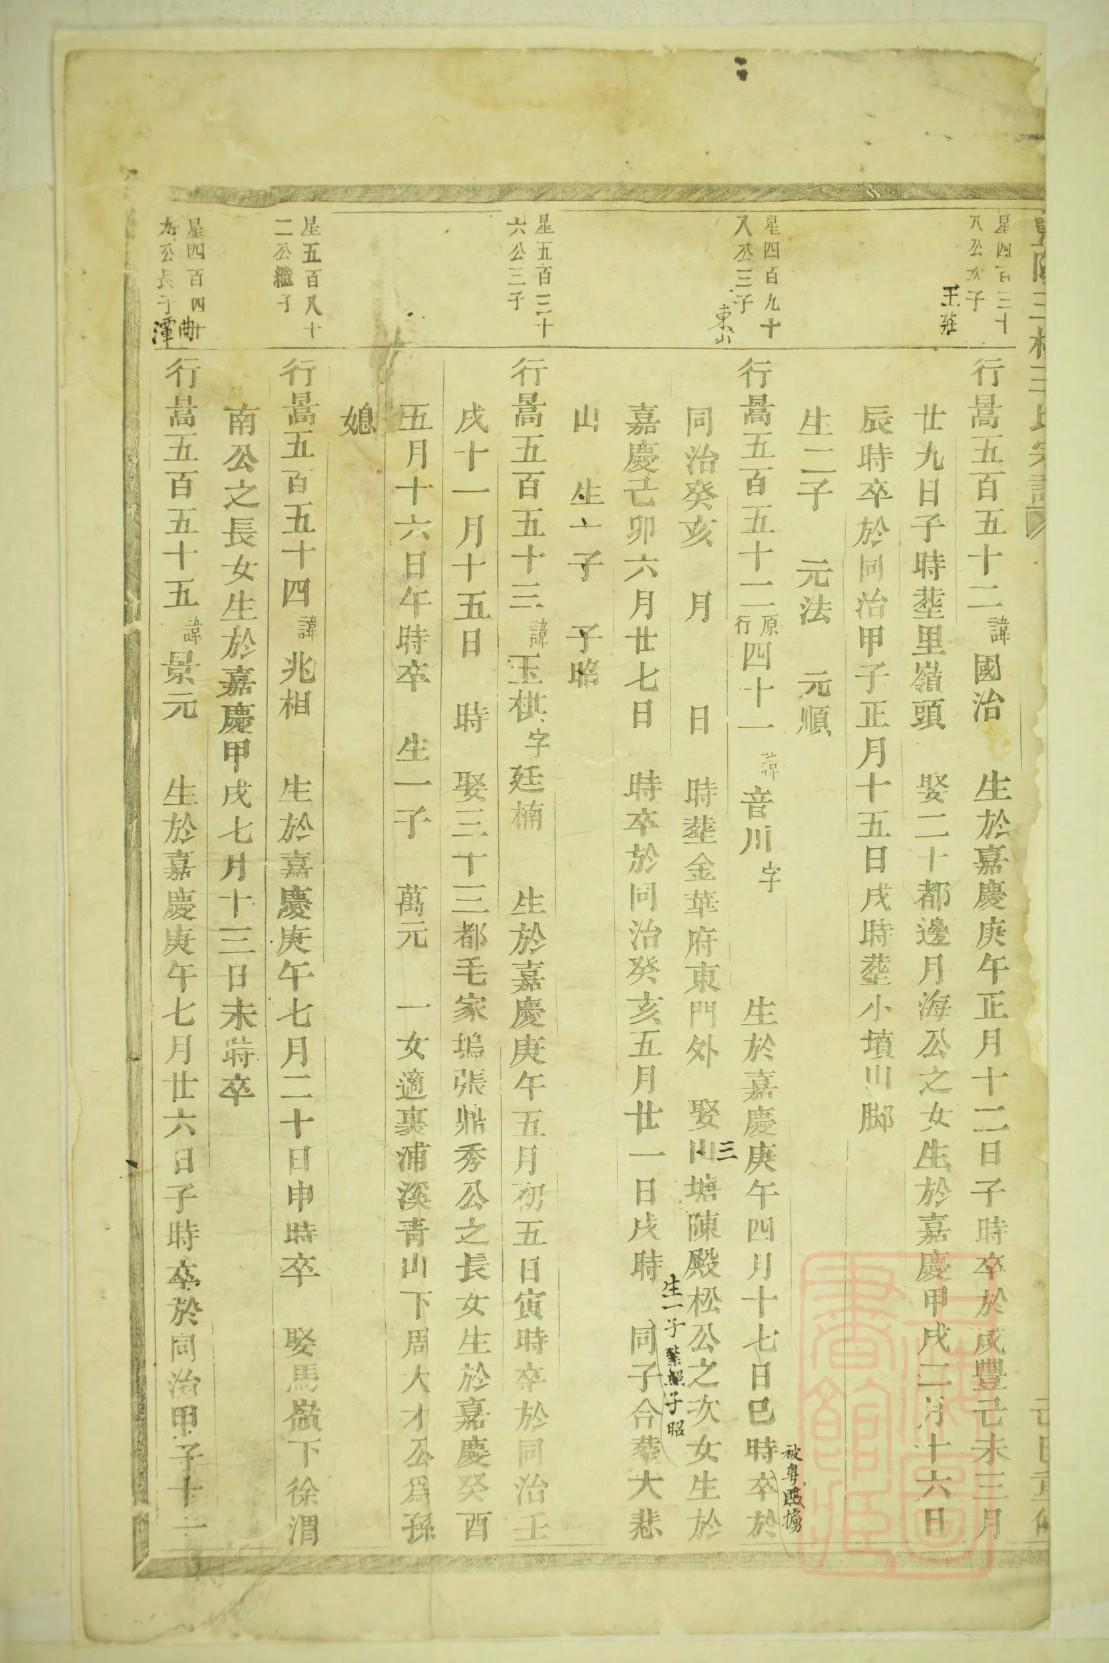 暨陽
宗譜
己巳重修
星四百三十
八公次子
王莊
行暠五百五十二諱國治 生於嘉慶庚午正月十二日子時卒於咸豐己未三月
廿九日子時塟里嶺頭 娶二十都邊月海公之女生於嘉慶甲戌二月十六日
辰時卒於同治甲子正月十五日戌時塟小墳山脚
生二子 元法 元順
星四百九十
八公三子
東山
行暠五百五十二原行四十一諱音川字 生於嘉慶庚午四月十七日巳時卒於
被粵匪擄
同治癸亥 月 日 時塟金華府東門外 娶山塘陳殿松公之次女生於
三
嘉慶己卯六月廿七日 時卒於同治癸亥五月廿一日戌時 同子合塟大悲
生一子 子昭
山 生一子 子昭
星五百三十
六公三子
行暠五百五十三諱玉棋字廷楠 生於嘉慶庚午五月初五日寅時卒於同治壬
戌十一月十五日 時 娶三十三都毛家塢張鼎秀公之長女生於嘉慶癸酉
五月十六日午時卒 生一子 萬元 一女適裏浦溪青山下周大才公爲孫
媳
星五百八十
二公繼子
行暠五百五十四諱兆相 生於嘉慶庚午七月二十日申時卒 娶馬嶺下徐渭
南公之長女生於嘉慶甲戌七月十三日未時卒
星四百四十
九公長子
行暠五百五十五諱景元 生於嘉慶庚午七月廿六日子時卒於同治甲子十二